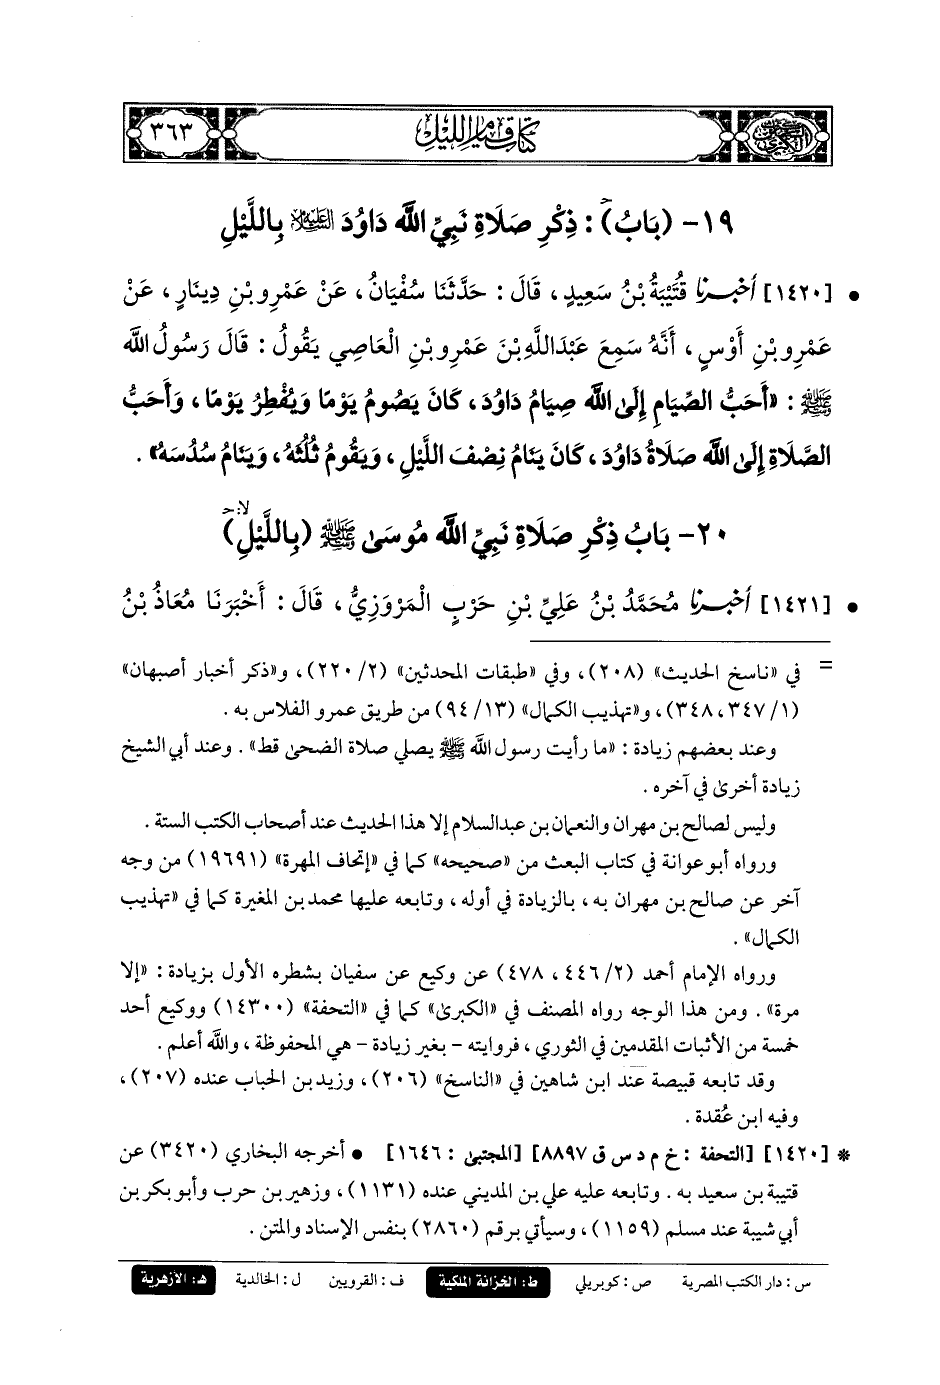 كتاب قيام الليل
٣٦٣
١٩- (بَابُ) : ذِكْرِ صَلَاةِ نَبِيِّ اللَّه دَاوُدَ العَلِيَّة بِاللَّيْلِ
• [١٤٢٠] أخبرنا قُتَيْبَةُ بْنُ سَعِيدٍ ، قَالَ : حَدَّثَنَا سُفْيَانُ ، عَنْ عَمْرِو بْنِ دِينَارٍ ، عَنْ
عَمْرِو بْنِ أَوْسٍ ، أَنَّهُ سَمِعَ عَبْدَاللَّهِ بْنَ عَمْرِو بْنِ الْعَاصِي يَقُولُ : قَالَ رَسُولُ اللَّه
ﷺ : «أَحَبُّ الصِّيَامِ إِلَى اللَّه صِيَامُ دَاوُدَ ، كَانَ يَصُومُ يَوْمًا وَيُفْطِرُ يَوْمًا ، وَأَحَبُّ
الصَّلَاةِ إِلَى اللَّه صَلَاةُ دَاوُدَ ، كَانَ يَنَامُ نِصْفَ اللَّيْلِ ، وَيَقُومُ ثُلُثَهُ ، وَيَنَامُ سُدُسَهُ» .
٢٠- بَابُ ذِكْرِ صَلَاةِ نَبِيِّ اللَّه مُوسَى ﷺ (بِاللَّيْلِ)
• [١٤٢١] أخبرنا مُحَمَّدُ بْنُ عَلِيِّ بْنِ حَرْبٍ الْمَرْوَزِيُّ ، قَالَ : أَخْبَرَنَا مُعَاذُ بْنُ
= في «ناسخ الحديث» (٢٠٨) ، وفي «طبقات المحدثين» (٢/ ٢٢٠) ، و«ذكر أخبار أصبهان»
(١/ ٣٤٧، ٣٤٨) ، و«تهذيب الكمال» (١٣/ ٩٤) من طريق عمرو الفلاس به .
وعند بعضهم زيادة : «ما رأيت رسول اللَّه ﷺ يصلي صلاة الضحى قط» . وعند أبي الشيخ
زيادة أخرى في آخره .
وليس لصالح بن مهران والنعمان بن عبدالسلام إلا هذا الحديث عند أصحاب الكتب الستة .
ورواه أبو عوانة في كتاب البعث من «صحيحه» كما في «إتحاف المهرة» (١٩٦٩١) من وجه
آخر عن صالح بن مهران به ، بالزيادة في أوله ، وتابعه عليها محمد بن المغيرة كما في «تهذيب
الكمال» .
ورواه الإمام أحمد (٢/ ٤٤٦ ، ٤٧٨) عن وكيع عن سفيان بشطره الأول بزيادة : «إلا
مرة» . ومن هذا الوجه رواه المصنف في «الكبرى» كما في «التحفة» (١٤٣٠٠) ووكيع أحد
خمسة من الأثبات المقدمين في الثوري ، فروايته - بغير زيادة - هي المحفوظة ، واللَّه أعلم .
وقد تابعه قبيصة عند ابن شاهين في «الناسخ» (٢٠٦) ، وزيد بن الحباب عنده (٢٠٧) ،
وفيه ابن عُقدة .
* [١٤٢٠] [التحفة : خ م د س ق ٨٨٩٧] [المجتبى : ١٦٤٦] • أخرجه البخاري (٣٤٢٠) عن
قتيبة بن سعيد به . وتابعه عليه علي بن المديني عنده (١١٣١) ، وزهير بن حرب وأبو بكر بن
أبي شيبة عند مسلم (١١٥٩) ، وسيأتي برقم (٢٨٦٠) بنفس الإسناد والمتن .
س : دار الكتب المصرية ص : كوبريلي ط : الخزانة الملكية ف : القرويين ل : الخالدية هـ : الأزهرية